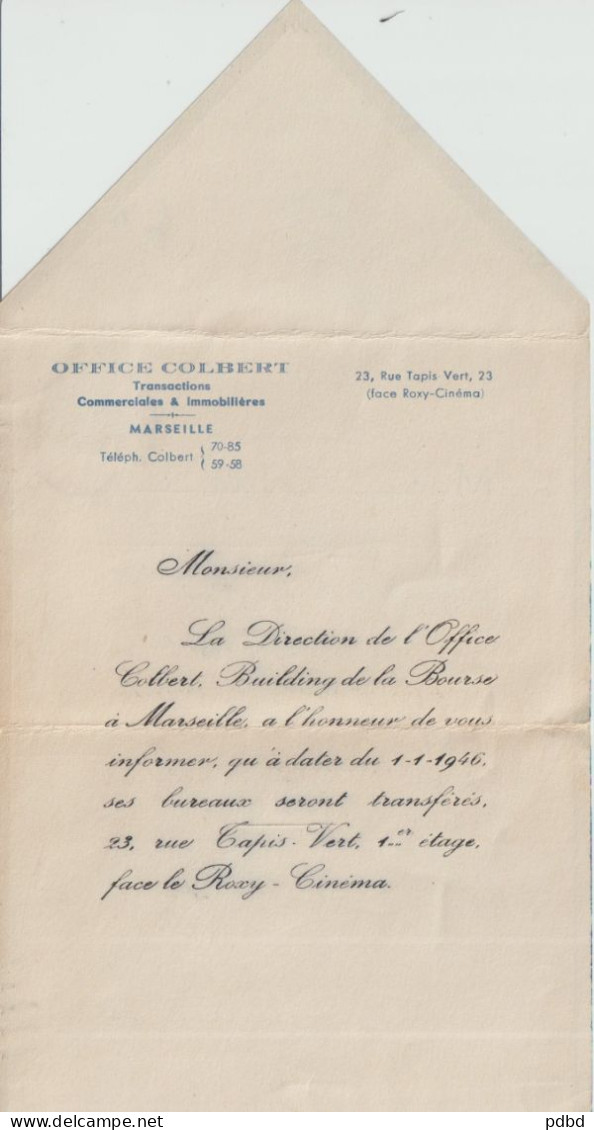 OFFICE COLBERT
Transactions
Commerciales & Immobilières
MARSEILLE
Téléph. Colbert { 70-85
59-58
23, Rue Tapis Vert, 23
(face Roxy-Cinéma)
Monsieur,
La Direction de l'Office
Colbert, Building de la Bourse
à Marseille, a l'honneur de vous
informer, qu'à dater du 1-1-1946,
ses bureaux seront transférés,
23, rue Tapis-Vert, 1er étage,
face le Roxy-Cinéma.
DELCAMPE.NET
pdbd